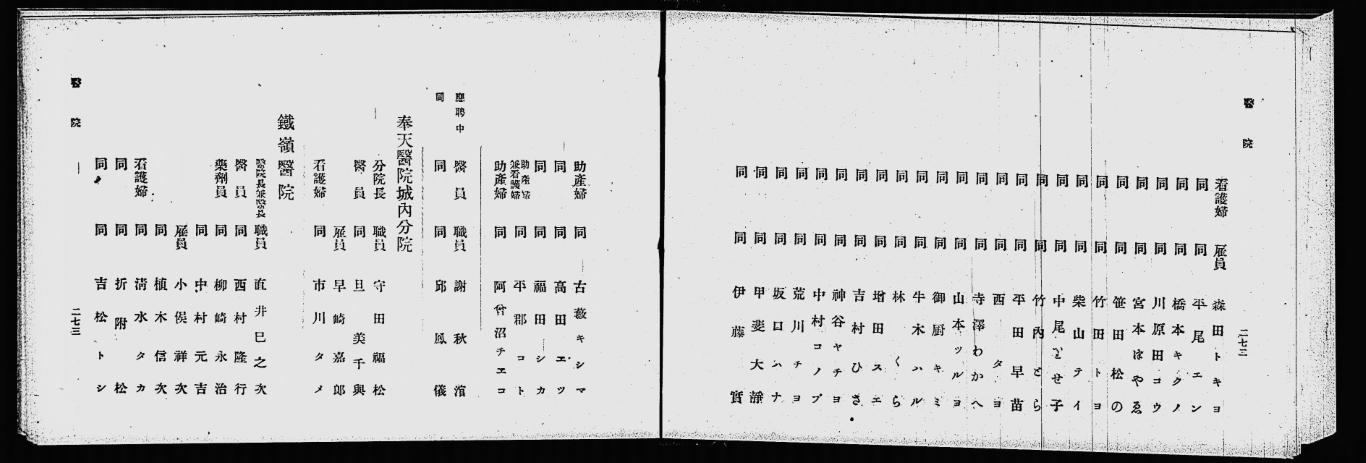 醫院
二七三
看護婦 雇員 森田トキヨ
同 同 平尾エン
同 同 橋本キクノ
同 同 川原田コウ
同 同 宮本はやゑ
同 同 笹田松の
同 同 竹田トヨ
同 同 柴山テイ
同 同 中尾とせ子
同 同 竹內とら
同 同 平田早苗
同 同 西タヨ
同 同 寺澤わかへ
同 同 山本ツルヨ
同 同 御厨キミ
同 同 牛木ハル
同 同 林くら
同 同 增田スエ
同 同 吉村ひさ
同 同 神谷ヤチヨ
同 同 中村コノブ
同 同 荒川チヨ
同 同 坂口ハナ
同 同 甲斐大靜
同 同 伊藤實
助產婦 同 古薮キシマ
同 同 高田エツ
同 同 福田シカ
助產婦兼看護婦 同 平郡コト
助產婦 同 阿曾沼チエコ
應聘中 醫員 職員 謝秋濱
同 同 同 邱鳳儀
奉天醫院城內分院
分院長 職員 守田福松
醫員 同 旦美千與
雇員 早崎嘉郎
看護婦 同 市川タメ
鐵嶺醫院
醫院長兼醫長 職員 直井巳之次
醫員 同 西村隆行
藥劑員 同 柳崎永治
同 中村元吉
雇員 小俣祥次
同 植木信次
看護婦 同 淸水タカ
同 同 折附松
同 同 吉松トシ
醫院
二七三